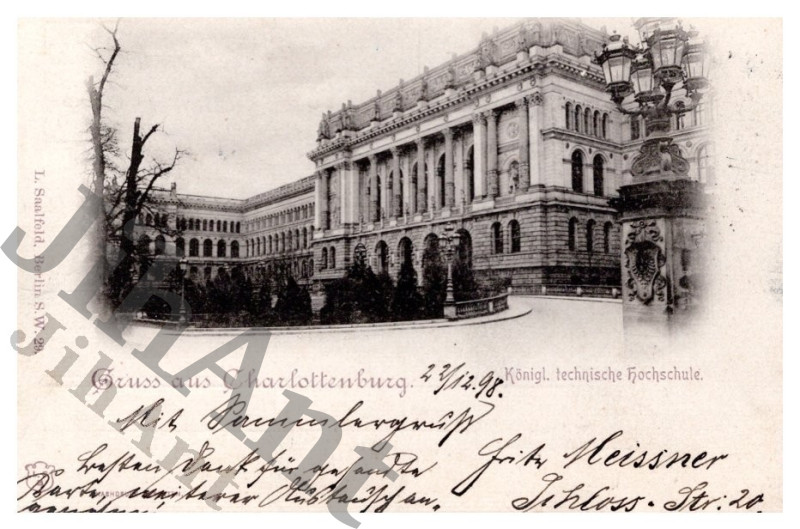 L. Saalfeld, Berlin S.W. 29.
Gruss aus Charlottenburg.
22/12.98.
Königl. technische Hochschule.
Mit Sammlergruß
besten Dank für gesandte
Karte, weiterer Austausch an-
genehm.
Fritz Meissner
Schloss-Str: 20.
JihAnt
JihAnt